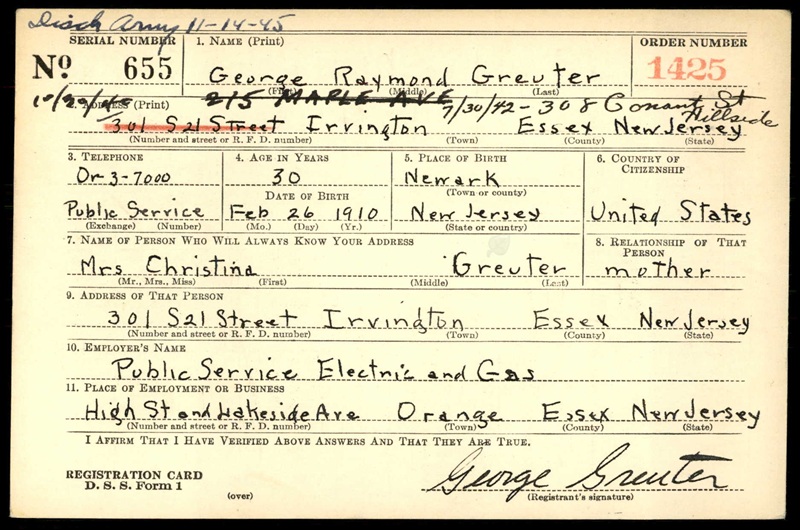 Disch Army 11-14-45
SERIAL NUMBER 1. NAME (Print) ORDER NUMBER
No 655 George Raymond Greuter 1425
(First) (Middle) (Last)
215 MAPLE AVE 7/30/42 - 308 Conant St
2. ADDRESS (Print) Hillside
301 S21 Street Irvington Essex New Jersey
(Number and street or R. F. D. number) (Town) (County) (State)
3. TELEPHONE 4. AGE IN YEARS 5. PLACE OF BIRTH 6. COUNTRY OF CITIZENSHIP
Or-3-7000 30 Newark
DATE OF BIRTH (Town or county)
Public Service Feb 26 1910 New Jersey United States
(Exchange) (Number) (Mo.) (Day) (Yr.) (State or country)
7. NAME OF PERSON WHO WILL ALWAYS KNOW YOUR ADDRESS 8. RELATIONSHIP OF THAT PERSON
Mrs Christina Greuter mother
(Mr., Mrs., Miss) (First) (Middle) (Last)
9. ADDRESS OF THAT PERSON
301 S21 Street Irvington Essex New Jersey
(Number and street or R. F. D. number) (Town) (County) (State)
10. EMPLOYER'S NAME
Public Service Electric and Gas
11. PLACE OF EMPLOYMENT OR BUSINESS
High St and Lakeside Ave Orange Essex New Jersey
(Number and street or R. F. D. number) (Town) (County) (State)
I AFFIRM THAT I HAVE VERIFIED ABOVE ANSWERS AND THAT THEY ARE TRUE.
REGISTRATION CARD George Greuter
D. S. S. Form 1 (over) (Registrant's signature)